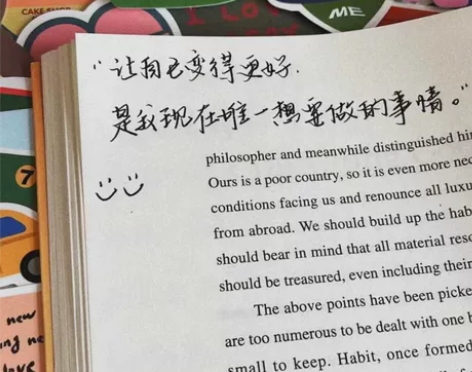 CAKE SHOP
I LOVE
ME
"让自己变得更好.
是我现在唯一想要做的事情。"
philosopher and meanwhile distinguished hi
Ours is a poor country, so it is even more nec
conditions facing us and renounce all luxu
from abroad. We should build up the hab
should bear in mind that all material reso
should be treasured, even including their
The above points have been picke
are too numerous to be dealt with one b
small to keep. Habit, once formed
7
new
love